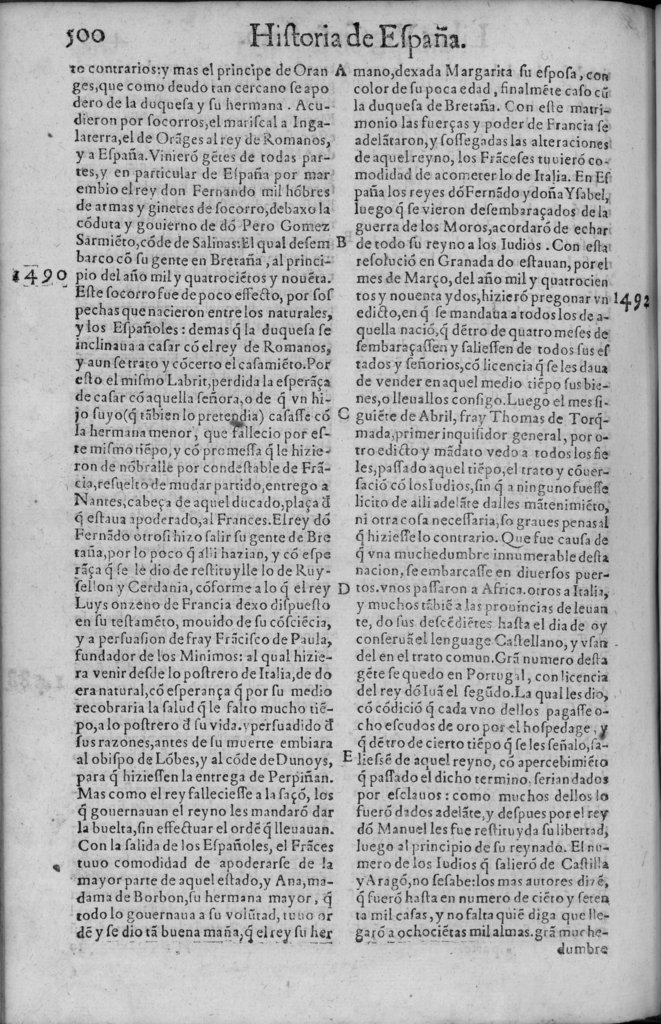 500 Historia de España.
to contrarios:y mas el principe de Oran
ges,que como deudo tan cercano se apo
dero de la duquesa y su hermana . Acu-
dieron por socorros,el mariscal a Inga-
laterra,el de Orãges al rey de Romanos,
y a España.Vinierõ gẽtes de todas par-
tes,y en particular de España por mar
embio el rey don Fernando mil hõbres
de armas y ginetes de socorro,debaxo la
cõduta y gouierno de dõ Pero Gomez
Sarmiẽto,cõde de Salinas:El qual desem
barco cõ su gente en Bretaña , al princi-
1490 pio del año mil y quatrociẽtos y nouẽta.
Este socorro fue de poco effecto, por sos
pechas que nacieron entre los naturales,
y los Españoles : demas q̃ la duquesa se
inclinaua a casar cõ el rey de Romanos,
y aun se trato y cõcerto el casamiẽto.Por
esto el mismo Labrit,perdida la esperãça
de casar cõ aquella señora,o de q̃ vn hi-
jo suyo(q̃ tãbien lo pretendia) casasse cõ
la hermana menor, que fallecio por es-
te mismo tiẽpo, y cõ promessa q̃ le hizie-
ron de nõbralle por condestable de Frã-
cia,resuelto de mudar partido,entrego a
Nantes,cabeça de aquel ducado,plaça đ
q̃ estaua apoderado,al Frances.El rey dõ
Fernãdo otrosi hizo salir su gente de Bre
taña,por lo poco q̃ alli hazian, y cõ espe
rãça q̃ se le dio de restituylle lo de Ruy-
sellon y Cerdania, cõforme a lo q̃ el rey
Luys onzeno de Francia dexo dispuesto
en su testamẽto, mouido de su cõsciẽcia,
y a persuasion de fray Frãcisco de Paula,
fundador de los Minimos: al qual hizie-
ra venir desde lo postrero de Italia,de do
era natural,cõ esperança q̃ por su medio
recobraria la salud q̃ le falto mucho tiẽ-
po,a lo postrero đ su vida.y persuadido đ
sus razones,antes de su muerte embiara
al obispo de Lõbes,y al cõde de Dunoys,
para q̃ hiziessen la entrega de Perpiñan.
Mas como el rey falleciesse a la saçõ, los
q̃ gouernauan el reyno les mandarõ dar
la buelta,sin effectuar el ordẽ q̃ lleuauan.
Con la salida de los Españoles, el Frãces
tuuo comodidad de apoderarse de la
mayor parte de aquel estado,y Ana,ma-
dama de Borbon,su hermana mayor, q̃
todo lo gouernaua a su volũtad, tuuo or
dẽ y se dio tã buena maña,q̃ el rey su her
A
B
C
D
E
mano,dexada Margarita su esposa, con
color de su poca edad , finalmẽte caso cũ
la duquesa de Bretaña. Con este matri-
monio las fuerças y poder de Francia se
adelãtaron,y sossegadas las alteraciones
de aquel reyno, los Frãceses tuuierõ co-
modidad de acometer lo de Italia. En Es
paña los reyes dõ Fernãdo y doña Ysabel,
luego q̃ se vieron desembaraçados de la
guerra de los Moros,acordarõ de echar
de todo su reyno a los Iudios . Con esta
resoluciõ en Granada do estauan, por el
mes de Março, del año mil y quatrocien
tos y nouenta y dos,hizierõ pregonar vn 1492
edicto,en q̃ se mandaua a todos los de a-
quella naciõ,q̃ dẽtro de quatro meses de
sembaraçassen y saliessen de todos sus es
tados y señorios,cõ licencia q̃ se les daua
de vender en aquel medio tiẽpo sus bie-
nes,o lleuallos consigo.Luego el mes si-
guiẽte de Abril, fray Thomas de Torq̃-
mada,primer inquisidor general, por o-
tro edicto y mãdato vedo a todos los fie
les,passado aquel tiẽpo,el trato y cõuer-
saciõ cõ los Iudios, sin q̃ a ninguno fuesse
licito de alli adelãte dalles mãtenimiẽto,
ni otra cosa necessaria,so graues penas al
q̃ hiziesse lo contrario. Que fue causa de
q̃ vna muchedumbre innumerable desta
nacion, se embarcasse en diuersos puer-
tos.vnos passaron a Africa.otros a Italia,
y muchos tãbiẽ a las prouincias de leuan
te, do sus descẽdiẽtes hasta el dia de oy
conseruã el lenguage Castellano, y vsan
del en el trato comun.Grã numero desta
gẽte se quedo en Portugal , con licencia
del rey dõ Iuã el segũdo.La qual les dio,
cõ cõdiciõ q̃ cada vno dellos pagasse o-
cho escudos de oro por el hospedage , y
q̃ dẽtro de cierto tiẽpo q̃ se les señalo,sa-
liessẽ de aquel reyno, cõ apercebimiẽto
q̃ passado el dicho termino, serian dados
por esclauos : como muchos dellos lo
fuerõ dados adelãte,y despues por el rey
dõ Manuel les fue restituyda su libertad,
luego al principio de su reynado. El nu-
mero de los Iudios q̃ salierõ de Castilla
y Aragõ,no se sabe:los mas autores dizẽ,
q̃ fuerõ hasta en numero de ciẽto y seten
ta mil casas, y no falta quiẽ diga que lle-
garõ a ochociẽtas mil almas.grã muche-
dumbre